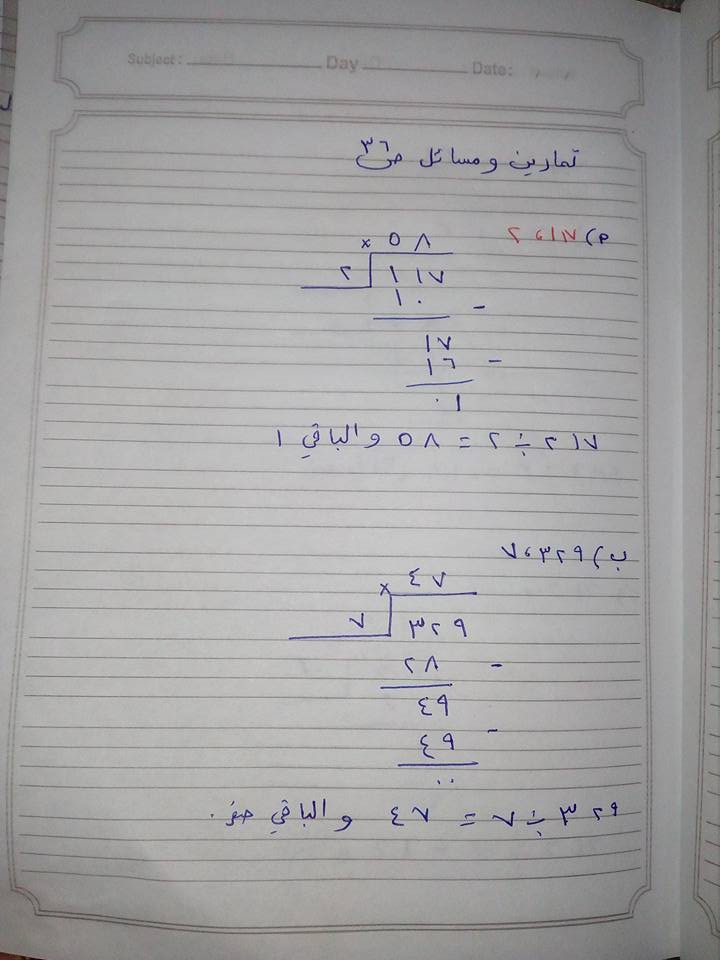 Subject : Day Date:
تمارين ومسائل ص ٣٦
أ) ١١٧ ، ٢
× ٥٨
٢ ١١٧
١٠ -
١٧
١٦ -
٠١
٢١٧ ÷ ٢ = ٥٨ والباقي ١
ب) ٣٢٩ ، ٧
× ٤٧
٧ ٣٢٩
٢٨ -
٤٩
٤٩ -
٠٠
٣٢٩ ÷ ٧ = ٤٧ والباقي صفر .